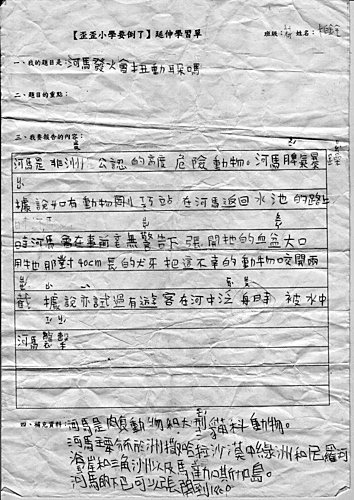 【歪歪小學要倒了】延伸學習單
班級： 姓名：
一、我的題目是：河馬發火會扭動耳嗎
二、題目的重點：
三、我要報告的內容：
河馬是非洲公認的高度危險動物。河馬脾氣暴
據說如有動物剛巧站在河馬返回水池的路上
時河馬會在事前毫無警告下張開牠的血盆大口
用牠那對40cm長的犬牙把這不幸的動物咬開兩
截據說亦試過有遊客在河中泛舟時被水中
河馬襲擊
四、補充資料：河馬是 動物和大型貓科動物。
河馬 於 洲撒哈拉沙漠中綠洲和尼羅河
沿岸和三角洲以及馬達加斯加島。
河馬的 巴可以張開到